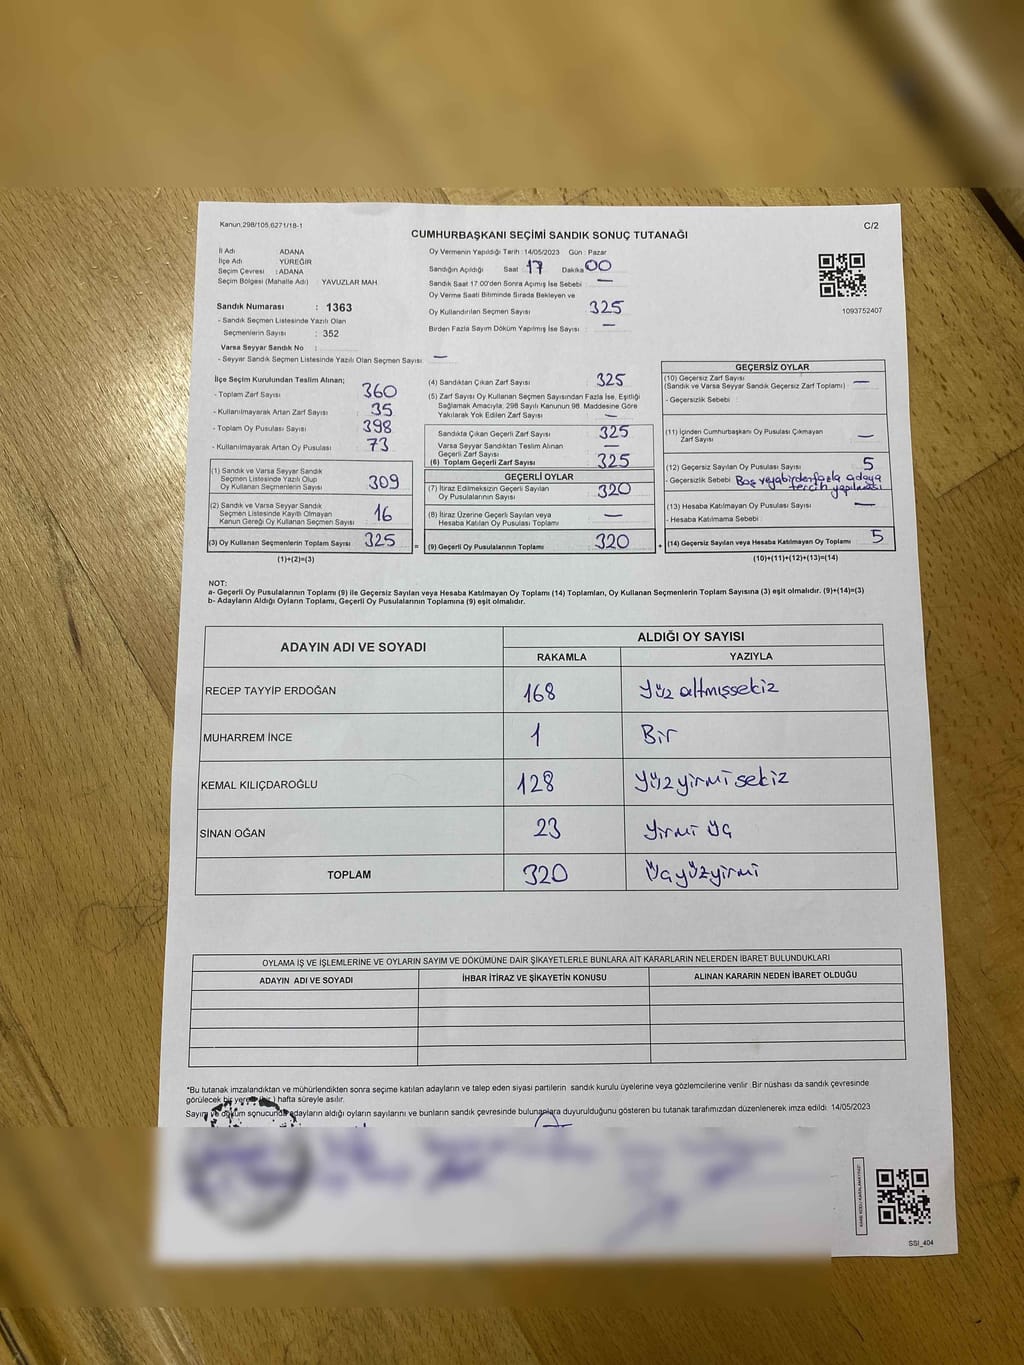 Kanun,298/105,6271/18-1
C/2
CUMHURBAŞKANI SEÇİMİ SANDIK SONUÇ TUTANAĞI
İl Adı : ADANA
İlçe Adı : YÜREĞİR
Seçim Çevresi : ADANA
Seçim Bölgesi (Mahalle Adı) : YAVUZLAR MAH
Sandık Numarası : 1363
- Sandık Seçmen Listesinde Yazılı Olan
Seçmenlerin Sayısı : 352
Varsa Seyyar Sandık No :
- Seyyar Sandık Seçmen Listesinde Yazılı Olan Seçmen Sayısı : —
Oy Vermenin Yapıldığı Tarih : 14/05/2023 Gün : Pazar
Sandığın Açıldığı Saat 17 Dakika 00
Sandık Saat 17.00'den Sonra Açılmış İse Sebebi : —
Oy Verme Saati Bitiminde Sırada Bekleyen ve
Oy Kullandırılan Seçmen Sayısı : 325
Birden Fazla Sayım Döküm Yapılmış İse Sayısı : —
1093752407
İlçe Seçim Kurulundan Teslim Alınan;
- Toplam Zarf Sayısı : 360
- Kullanılmayarak Artan Zarf Sayısı : 35
- Toplam Oy Pusulası Sayısı : 398
- Kullanılmayarak Artan Oy Pusulası : 73
(1) Sandık ve Varsa Seyyar Sandık
Seçmen Listesinde Yazılı Olup
Oy Kullanan Seçmenlerin Sayısı : 309
(2) Sandık ve Varsa Seyyar Sandık
Seçmen Listesinde Kayıtlı Olmayan
Kanun Gereği Oy Kullanan Seçmen Sayısı : 16
(3) Oy Kullanan Seçmenlerin Toplam Sayısı : 325
(1)+(2)=(3)
(4) Sandıktan Çıkan Zarf Sayısı : 325
(5) Zarf Sayısı Oy Kullanan Seçmen Sayısından Fazla İse, Eşitliği
Sağlamak Amacıyla, 298 Sayılı Kanunun 98. Maddesine Göre
Yakılarak Yok Edilen Zarf Sayısı : —
Sandıkta Çıkan Geçerli Zarf Sayısı : 325
Varsa Seyyar Sandıktan Teslim Alınan
Geçerli Zarf Sayısı : —
(6) Toplam Geçerli Zarf Sayısı : 325
GEÇERLİ OYLAR
(7) İtiraz Edilmeksizin Geçerli Sayılan
Oy Pusulalarının Sayısı : 320
(8) İtiraz Üzerine Geçerli Sayılan veya
Hesaba Katılan Oy Pusulası Toplamı : —
= (9) Geçerli Oy Pusulalarının Toplamı : 320
GEÇERSİZ OYLAR
(10) Geçersiz Zarf Sayısı
(Sandık ve Varsa Seyyar Sandık Geçersiz Zarf Toplamı) : —
- Geçersizlik Sebebi :
(11) İçinden Cumhurbaşkanı Oy Pusulası Çıkmayan
Zarf Sayısı : —
(12) Geçersiz Sayılan Oy Pusulası Sayısı : 5
- Geçersizlik Sebebi : Boş veya birden fazla adaya
tercih yapılması
(13) Hesaba Katılmayan Oy Pusulası Sayısı : —
- Hesaba Katılmama Sebebi :
+ (14) Geçersiz Sayılan veya Hesaba Katılmayan Oy Toplamı : 5
(10)+(11)+(12)+(13)=(14)
NOT:
a- Geçerli Oy Pusulalarının Toplamı (9) ile Geçersiz Sayılan veya Hesaba Katılmayan Oy Toplamı (14) Toplamları, Oy Kullanan Seçmenlerin Toplam Sayısına (3) eşit olmalıdır. (9)+(14)=(3)
b- Adayların Aldığı Oyların Toplamı, Geçerli Oy Pusulalarının Toplamına (9) eşit olmalıdır.
ADAYIN ADI VE SOYADI ALDIĞI OY SAYISI
RAKAMLA YAZIYLA
RECEP TAYYİP ERDOĞAN 168 Yüz altmışsekiz
MUHARREM İNCE 1 Bir
KEMAL KILIÇDAROĞLU 128 Yüzyirmisekiz
SİNAN OĞAN 23 Yirmi üç
TOPLAM 320 Üçyüzyirmi
OYLAMA İŞ VE İŞLEMLERİNE VE OYLARIN SAYIM VE DÖKÜMÜNE DAİR ŞİKAYETLERLE BUNLARA AİT KARARLARIN NELERDEN İBARET BULUNDUKLARI
ADAYIN ADI VE SOYADI İHBAR İTİRAZ VE ŞİKAYETİN KONUSU ALINAN KARARIN NEDEN İBARET OLDUĞU
*Bu tutanak imzalandıktan ve mühürlendikten sonra seçime katılan adayların ve talep eden siyasi partilerin sandık kurulu üyelerine veya gözlemcilerine verilir. Bir nüshası da sandık çevresinde
görülecek bir yere ) hafta süreyle asılır.
Sayım ve döküm sonucunda adayların aldığı oyların sayılarını ve bunların sandık çevresinde bulunanlara duyurulduğunu gösteren bu tutanak tarafımızdan düzenlenerek imza edildi. 14/05/2023
SSI_404